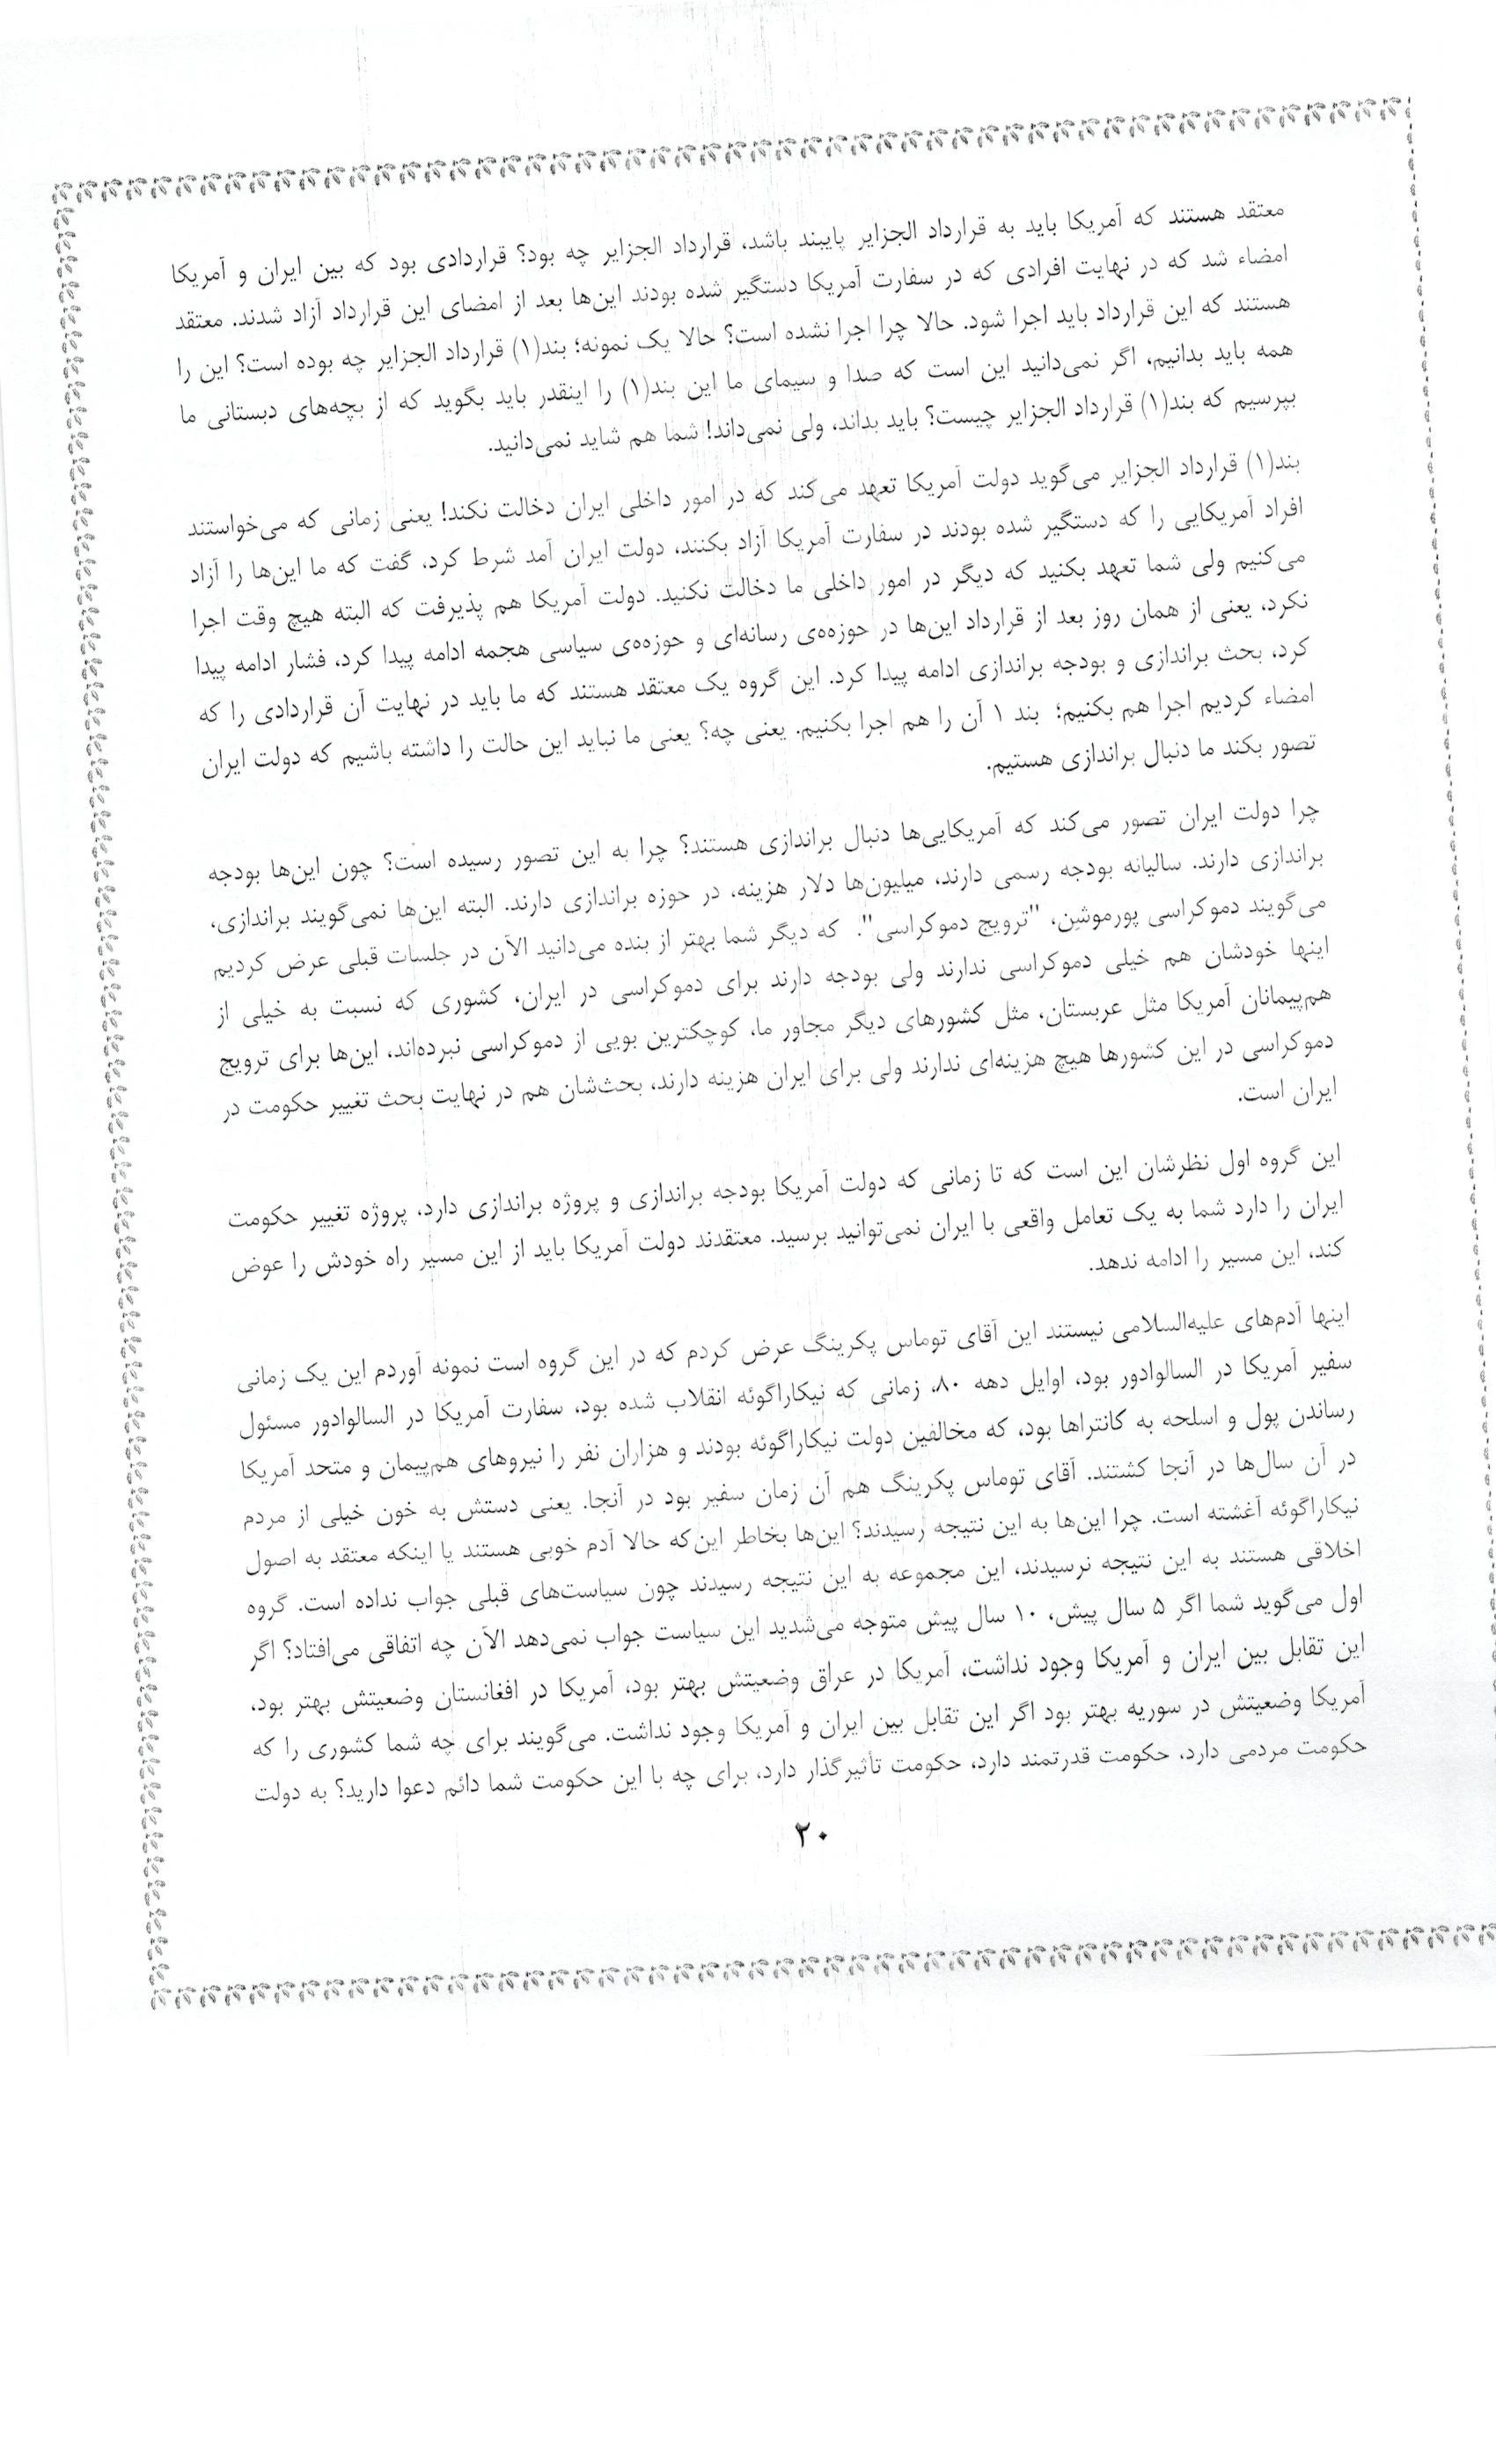 معتقد هستند که آمریکا باید به قرارداد الجزایر پایبند باشد، قرارداد الجزایر چه بود؟ قراردادی بود که بین ایران و آمریکا
امضاء شد که در نهایت افرادی که در سفارت آمریکا دستگیر شده بودند این‌ها بعد از امضای این قرارداد آزاد شدند. معتقد
هستند که این قرارداد باید اجرا شود. حالا چرا اجرا نشده است؟ حالا یک نمونه؛ بند(۱) قرارداد الجزایر چه بوده است؟ این را
همه باید بدانیم، اگر نمی‌دانید این است که صدا و سیمای ما این بند(۱) را اینقدر باید بگوید که از بچه‌های دبستانی ما
بپرسیم که بند(۱) قرارداد الجزایر چیست؟ باید بداند، ولی نمی‌داند! شما هم شاید نمی‌دانید.
بند(۱) قرارداد الجزایر می‌گوید دولت آمریکا تعهد می‌کند که در امور داخلی ایران دخالت نکند! یعنی زمانی که می‌خواستند
افراد آمریکایی را که دستگیر شده بودند در سفارت آمریکا آزاد بکنند، دولت ایران آمد شرط کرد، گفت که ما این‌ها را آزاد
می‌کنیم ولی شما تعهد بکنید که دیگر در امور داخلی ما دخالت نکنید. دولت آمریکا هم پذیرفت که البته هیچ وقت اجرا
نکرد، یعنی از همان روز بعد از قرارداد این‌ها در حوزه‌ه‌ی رسانه‌ای و حوزه‌ه‌ی سیاسی هجمه ادامه پیدا کرد، فشار ادامه پیدا
کرد، بحث براندازی و بودجه براندازی ادامه پیدا کرد. این گروه یک معتقد هستند که ما باید در نهایت آن قراردادی را که
امضاء کردیم اجرا هم بکنیم؛ بند ۱ آن را هم اجرا بکنیم. یعنی چه؟ یعنی ما نباید این حالت را داشته باشیم که دولت ایران
تصور بکند ما دنبال براندازی هستیم.
چرا دولت ایران تصور می‌کند که آمریکایی‌ها دنبال براندازی هستند؟ چرا به این تصور رسیده است؟ چون این‌ها بودجه
براندازی دارند. سالیانه بودجه رسمی دارند، میلیون‌ها دلار هزینه، در حوزه براندازی دارند. البته این‌ها نمی‌گویند براندازی،
می‌گویند دموکراسی پورموشِن، "ترویج دموکراسی". که دیگر شما بهتر از بنده می‌دانید الآن در جلسات قبلی عرض کردیم
اینها خودشان هم خیلی دموکراسی ندارند ولی بودجه دارند برای دموکراسی در ایران، کشوری که نسبت به خیلی از
هم‌پیمانان آمریکا مثل عربستان، مثل کشورهای دیگر مجاور ما، کوچکترین بویی از دموکراسی نبرده‌اند، این‌ها برای ترویج
دموکراسی در این کشورها هیچ هزینه‌ای ندارند ولی برای ایران هزینه دارند، بحث‌شان هم در نهایت بحث تغییر حکومت در
ایران است.
این گروه اول نظرشان این است که تا زمانی که دولت آمریکا بودجه براندازی و پروژه براندازی دارد، پروژه تغییر حکومت
ایران را دارد شما به یک تعامل واقعی با ایران نمی‌توانید برسید. معتقدند دولت آمریکا باید از این مسیر راه خودش را عوض
کند، این مسیر را ادامه ندهد.
اینها آدم‌های علیه‌السلامی نیستند این آقای توماس پکرینگ عرض کردم که در این گروه است نمونه آوردم این یک زمانی
سفیر آمریکا در السالوادور بود، اوایل دهه ۸۰، زمانی که نیکاراگوئه انقلاب شده بود، سفارت آمریکا در السالوادور مسئول
رساندن پول و اسلحه به کانتراها بود، که مخالفین دولت نیکاراگوئه بودند و هزاران نفر را نیروهای هم‌پیمان و متحد آمریکا
در آن سال‌ها در آنجا کشتند. آقای توماس پکرینگ هم آن زمان سفیر بود در آنجا. یعنی دستش به خون خیلی از مردم
نیکاراگوئه آغشته است. چرا این‌ها به این نتیجه رسیدند؟ این‌ها بخاطر این‌که حالا آدم خوبی هستند یا اینکه معتقد به اصول
اخلاقی هستند به این نتیجه نرسیدند، این مجموعه به این نتیجه رسیدند چون سیاست‌های قبلی جواب نداده است. گروه
اول می‌گوید شما اگر ۵ سال پیش، ۱۰ سال پیش متوجه می‌شدید این سیاست جواب نمی‌دهد الآن چه اتفاقی می‌افتاد؟ اگر
این تقابل بین ایران و آمریکا وجود نداشت، آمریکا در عراق وضعیتش بهتر بود، آمریکا در افغانستان وضعیتش بهتر بود،
آمریکا وضعیتش در سوریه بهتر بود اگر این تقابل بین ایران و آمریکا وجود نداشت. می‌گویند برای چه شما کشوری را که
حکومت مردمی دارد، حکومت قدرتمند دارد، حکومت تأثیرگذار دارد، برای چه با این حکومت شما دائم دعوا دارید؟ به دولت
۲۰